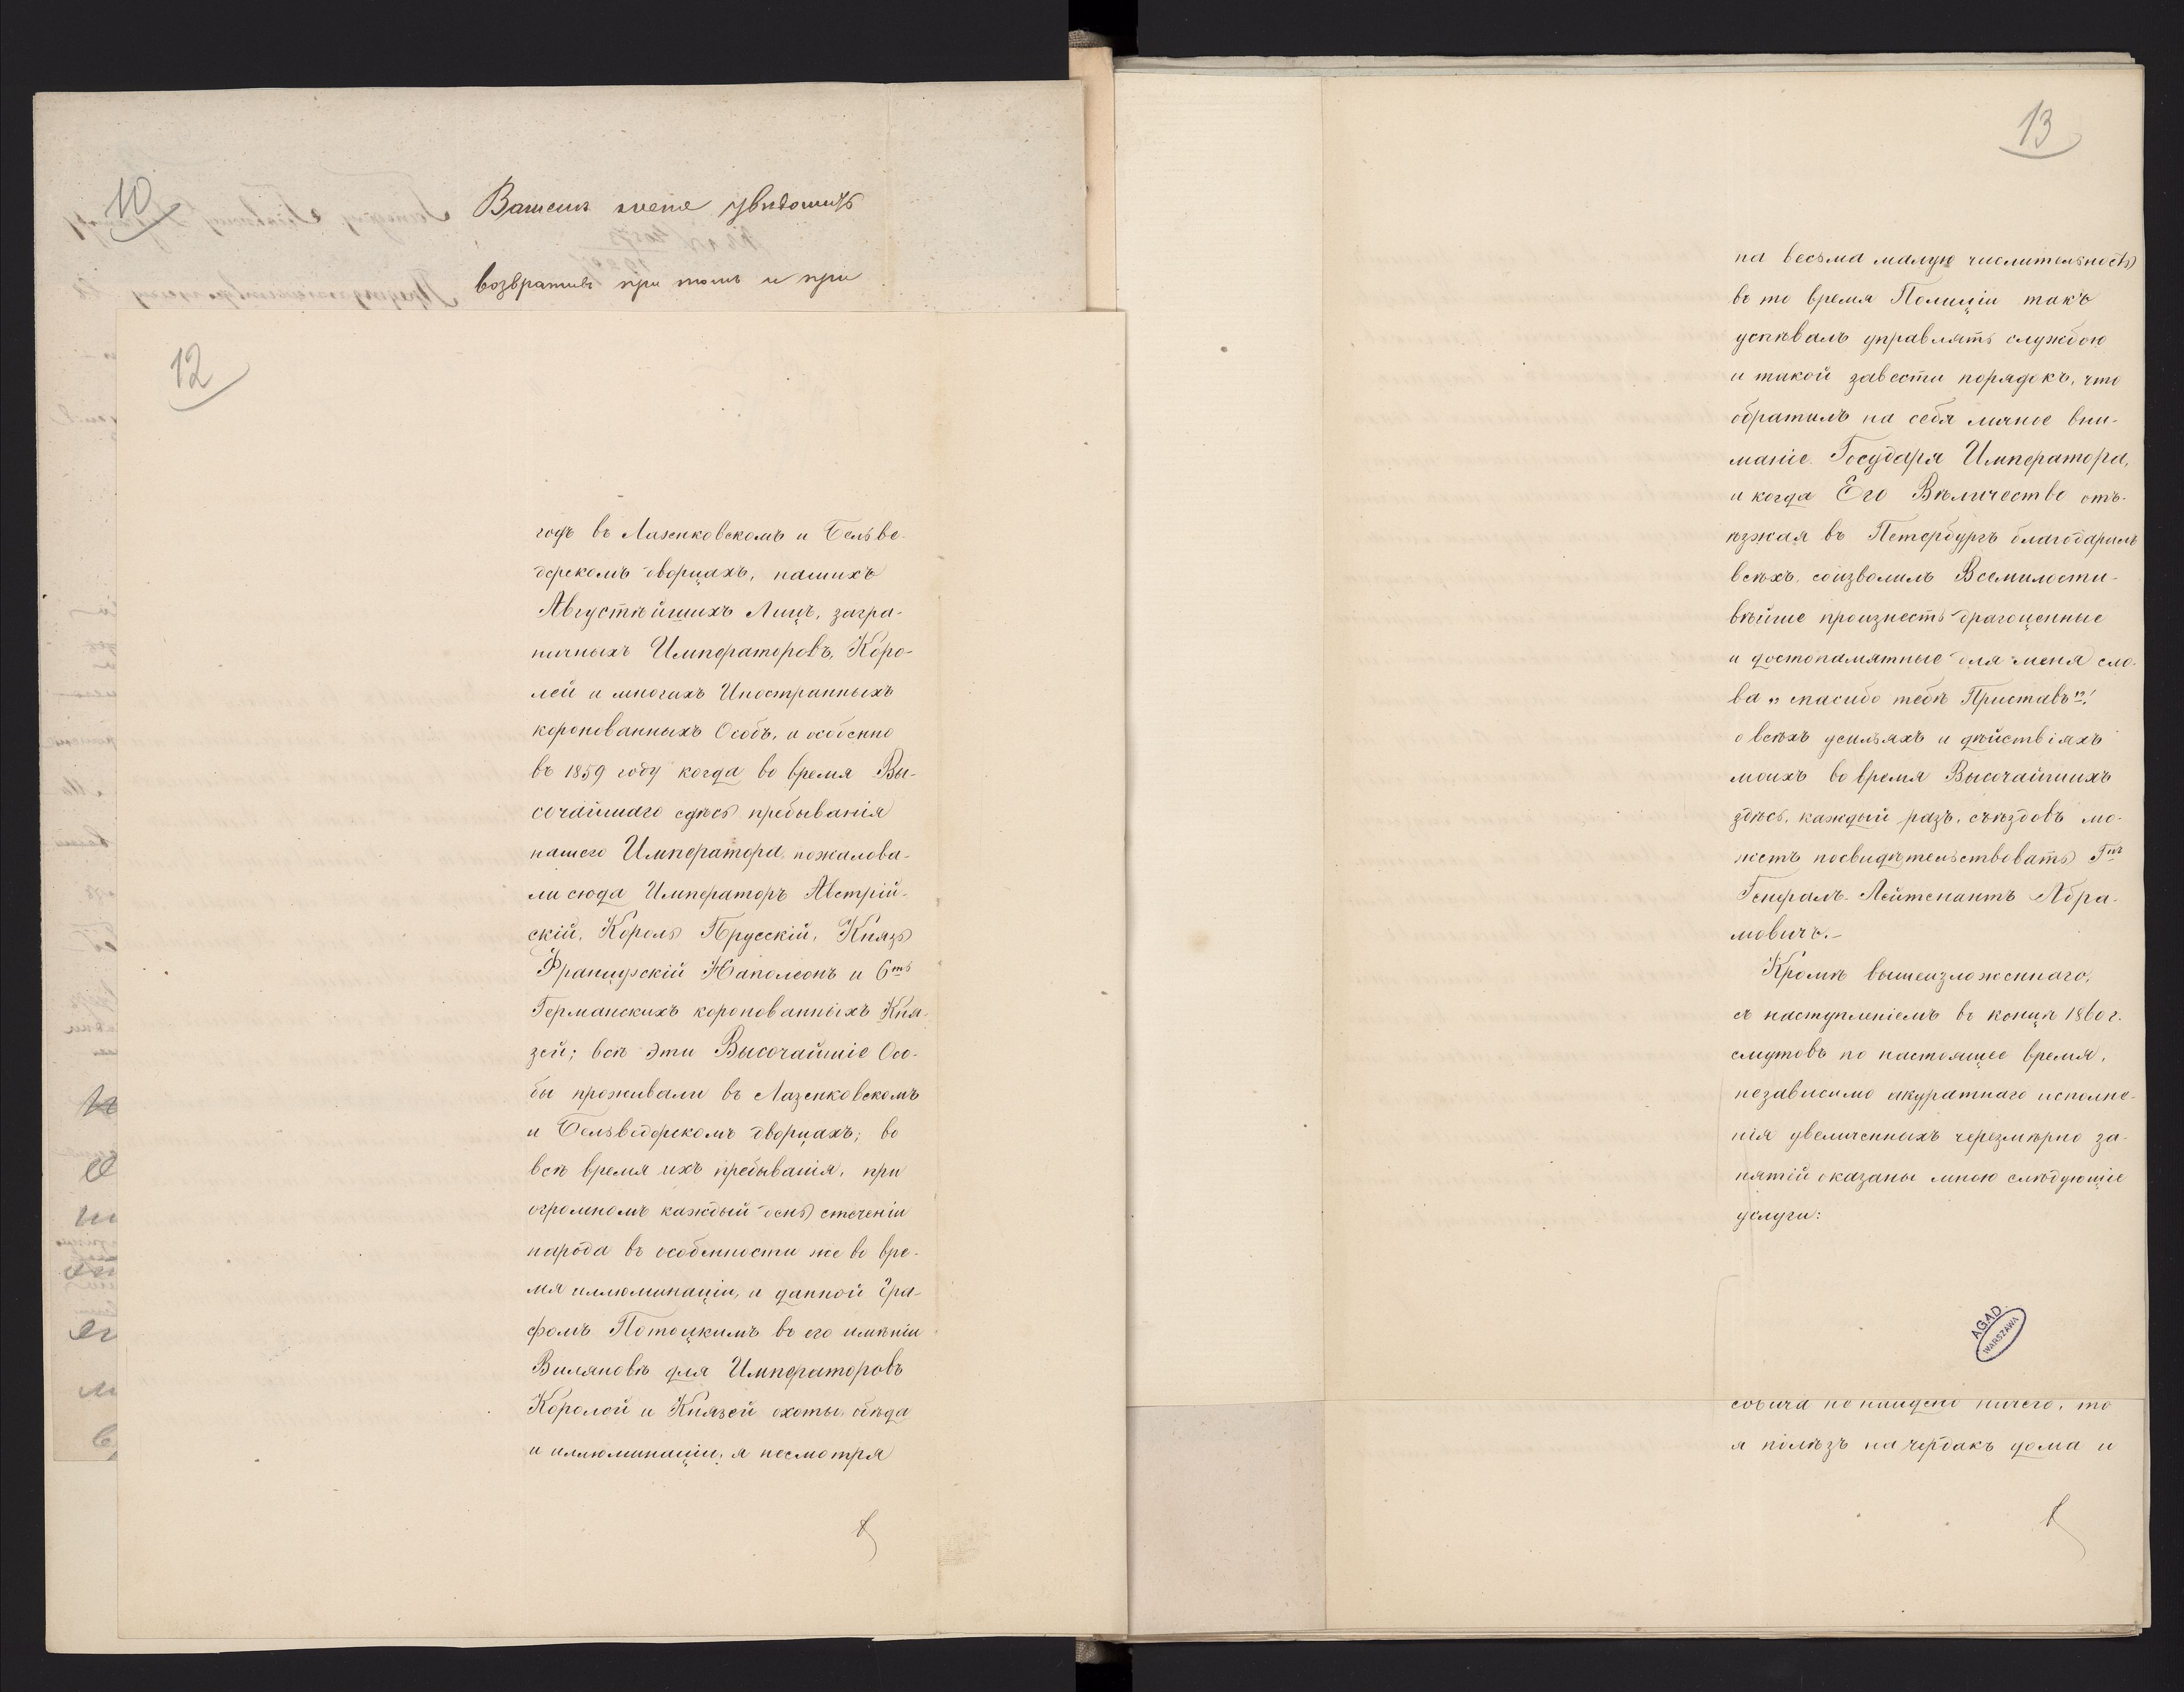 10
Вашемъ мнене увѣдомить
возвративъ при томъ и при
12
годъ въ Лазенковскомъ и Бельве-
дерскомъ дворцахъ, нашихъ
Августѣйшихъ Лицъ, загра-
ничныхъ Императоровъ, Коро-
лей и многихъ Иностранныхъ
коронованныхъ Особъ, и особенно
въ 1859 году когда во время Вы-
сочайшаго сдѣсь пребыванія
нашего Императора пожалова-
ли сюда Императоръ Австрій-
скій, Король Прусскій, Князь
Французскій Наполеонъ и 6ть
Германскихъ коронованныхъ Кня-
зей; всѣ эти Высочайшіе Осо-
бы проживали въ Лазенковскомъ
и Бельведерскомъ дворцахъ; во
всѣ время ихъ пребыванія, при
огромномъ каждый день стеченіи
народа въ особенности же во вре-
мя иллюминаціи, и данной Гра-
фомъ Потоцкимъ въ его имѣніи
Виляновѣ для Императоровъ
Королей и Князей охоты, обѣда
и иллюминаціи, я несмотря
13
на весьма малую числительность
въ то время Полиціи такъ
успѣвалъ управлять службою
и такой завести порядокъ, что
обратилъ на себя личное вни-
маніе Государя Императора,
и когда Его Вѣличество отъ-
ѣзжая въ Петербургъ благодарилъ
всѣхъ, соизволилъ Всемилости-
вѣйше произнесть драгоценные
и достопамятные для меня сло-
ва „спасибо тебѣ Приставъ"!
о всѣхъ усильяхъ и дѣйствіяхъ
моихъ во время Высочайшихъ
здѣсь, каждый разъ, съѣздовъ мо-
жетъ посвидѣтельствовать Гнъ
Генералъ-Лейтенантъ Абра-
мовичъ.-
Кромѣ вышеизложеннаго,
съ наступленіемъ въ концѣ 1860 г.
смутовъ по настоящее время,
независимо акуратнаго исполне-
нія увеличенныхъ черезмѣрно за-
нятій оказаны мною слѣдующіе
услуги:
AGAD
WARSZAWA
не найдено ничего, то
я полѣзъ на чердакъ дома и